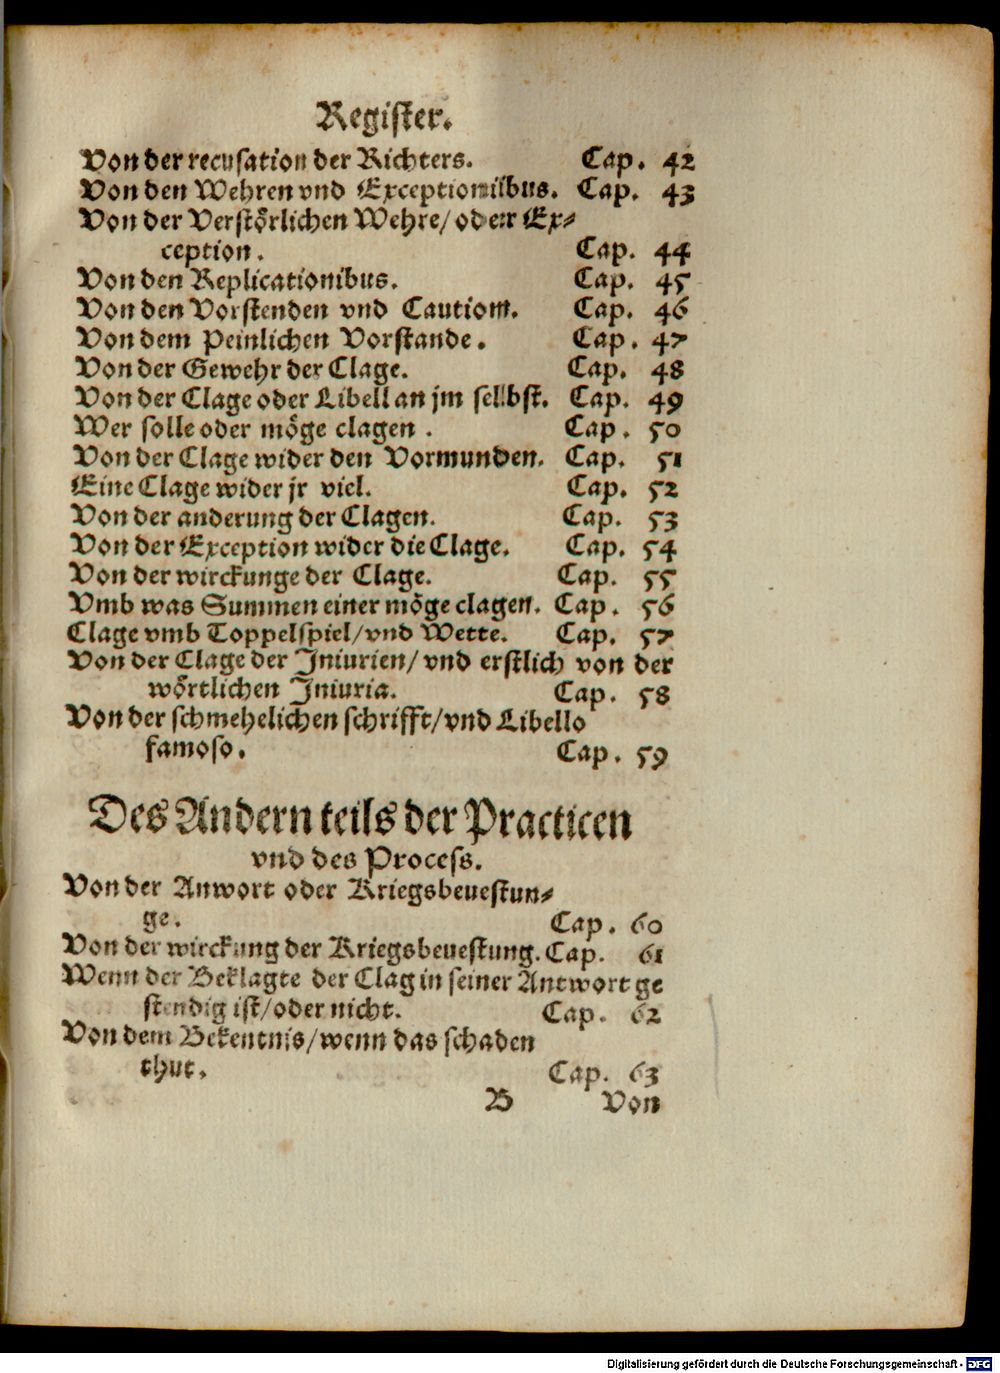 Register.
Von der recusation der Richters. Cap. 42
Von den Wehren vnd Exceptionibus. Cap. 43
Von der Verstörlichen Wehre/oder Ex⸗
ception. Cap. 44
Von den Replicationibus. Cap. 45
Von den Vorstenden vnd Caution. Cap. 46
Von dem Peinlichen Vorstande. Cap. 47
Von der Gewehr der Clage. Cap. 48
Von der Clage oder Libell an jm selbst. Cap. 49
Wer solle oder möge clagen. Cap. 50
Von der Clage wider den Vormunden. Cap. 51
Eine Clage wider jr viel. Cap. 52
Von der anderung der Clagen. Cap. 53
Von der Exception wider die Clage. Cap. 54
Von der wirckunge der Clage. Cap. 55
Vmb was Summen einer möge clagen. Cap. 56
Clage vmb Toppelspiel/vnd Wette. Cap. 57
Von der Clage der Iniurien/ vnd erstlich von der
wörtlichen Iniuria. Cap. 58
Von der schmehelichen schrifft/vnd Libello
famoso. Cap. 59
Des Andern teils der Practicen
vnd des Process.
Von der Anwort oder Kriegsbeuestun⸗
ge. Cap. 60
Von der wirckung der Kriegsbeuestung. Cap. 61
Wenn der Beklagte der Clag in seiner Antwort ge
stendig ist/oder nicht. Cap. 62
Von dem Bekentnis/wenn das schaden
thut. Cap. 63
B Von
Digitalisierung gefördert durch die Deutsche Forschungsgemeinschaft - DFG